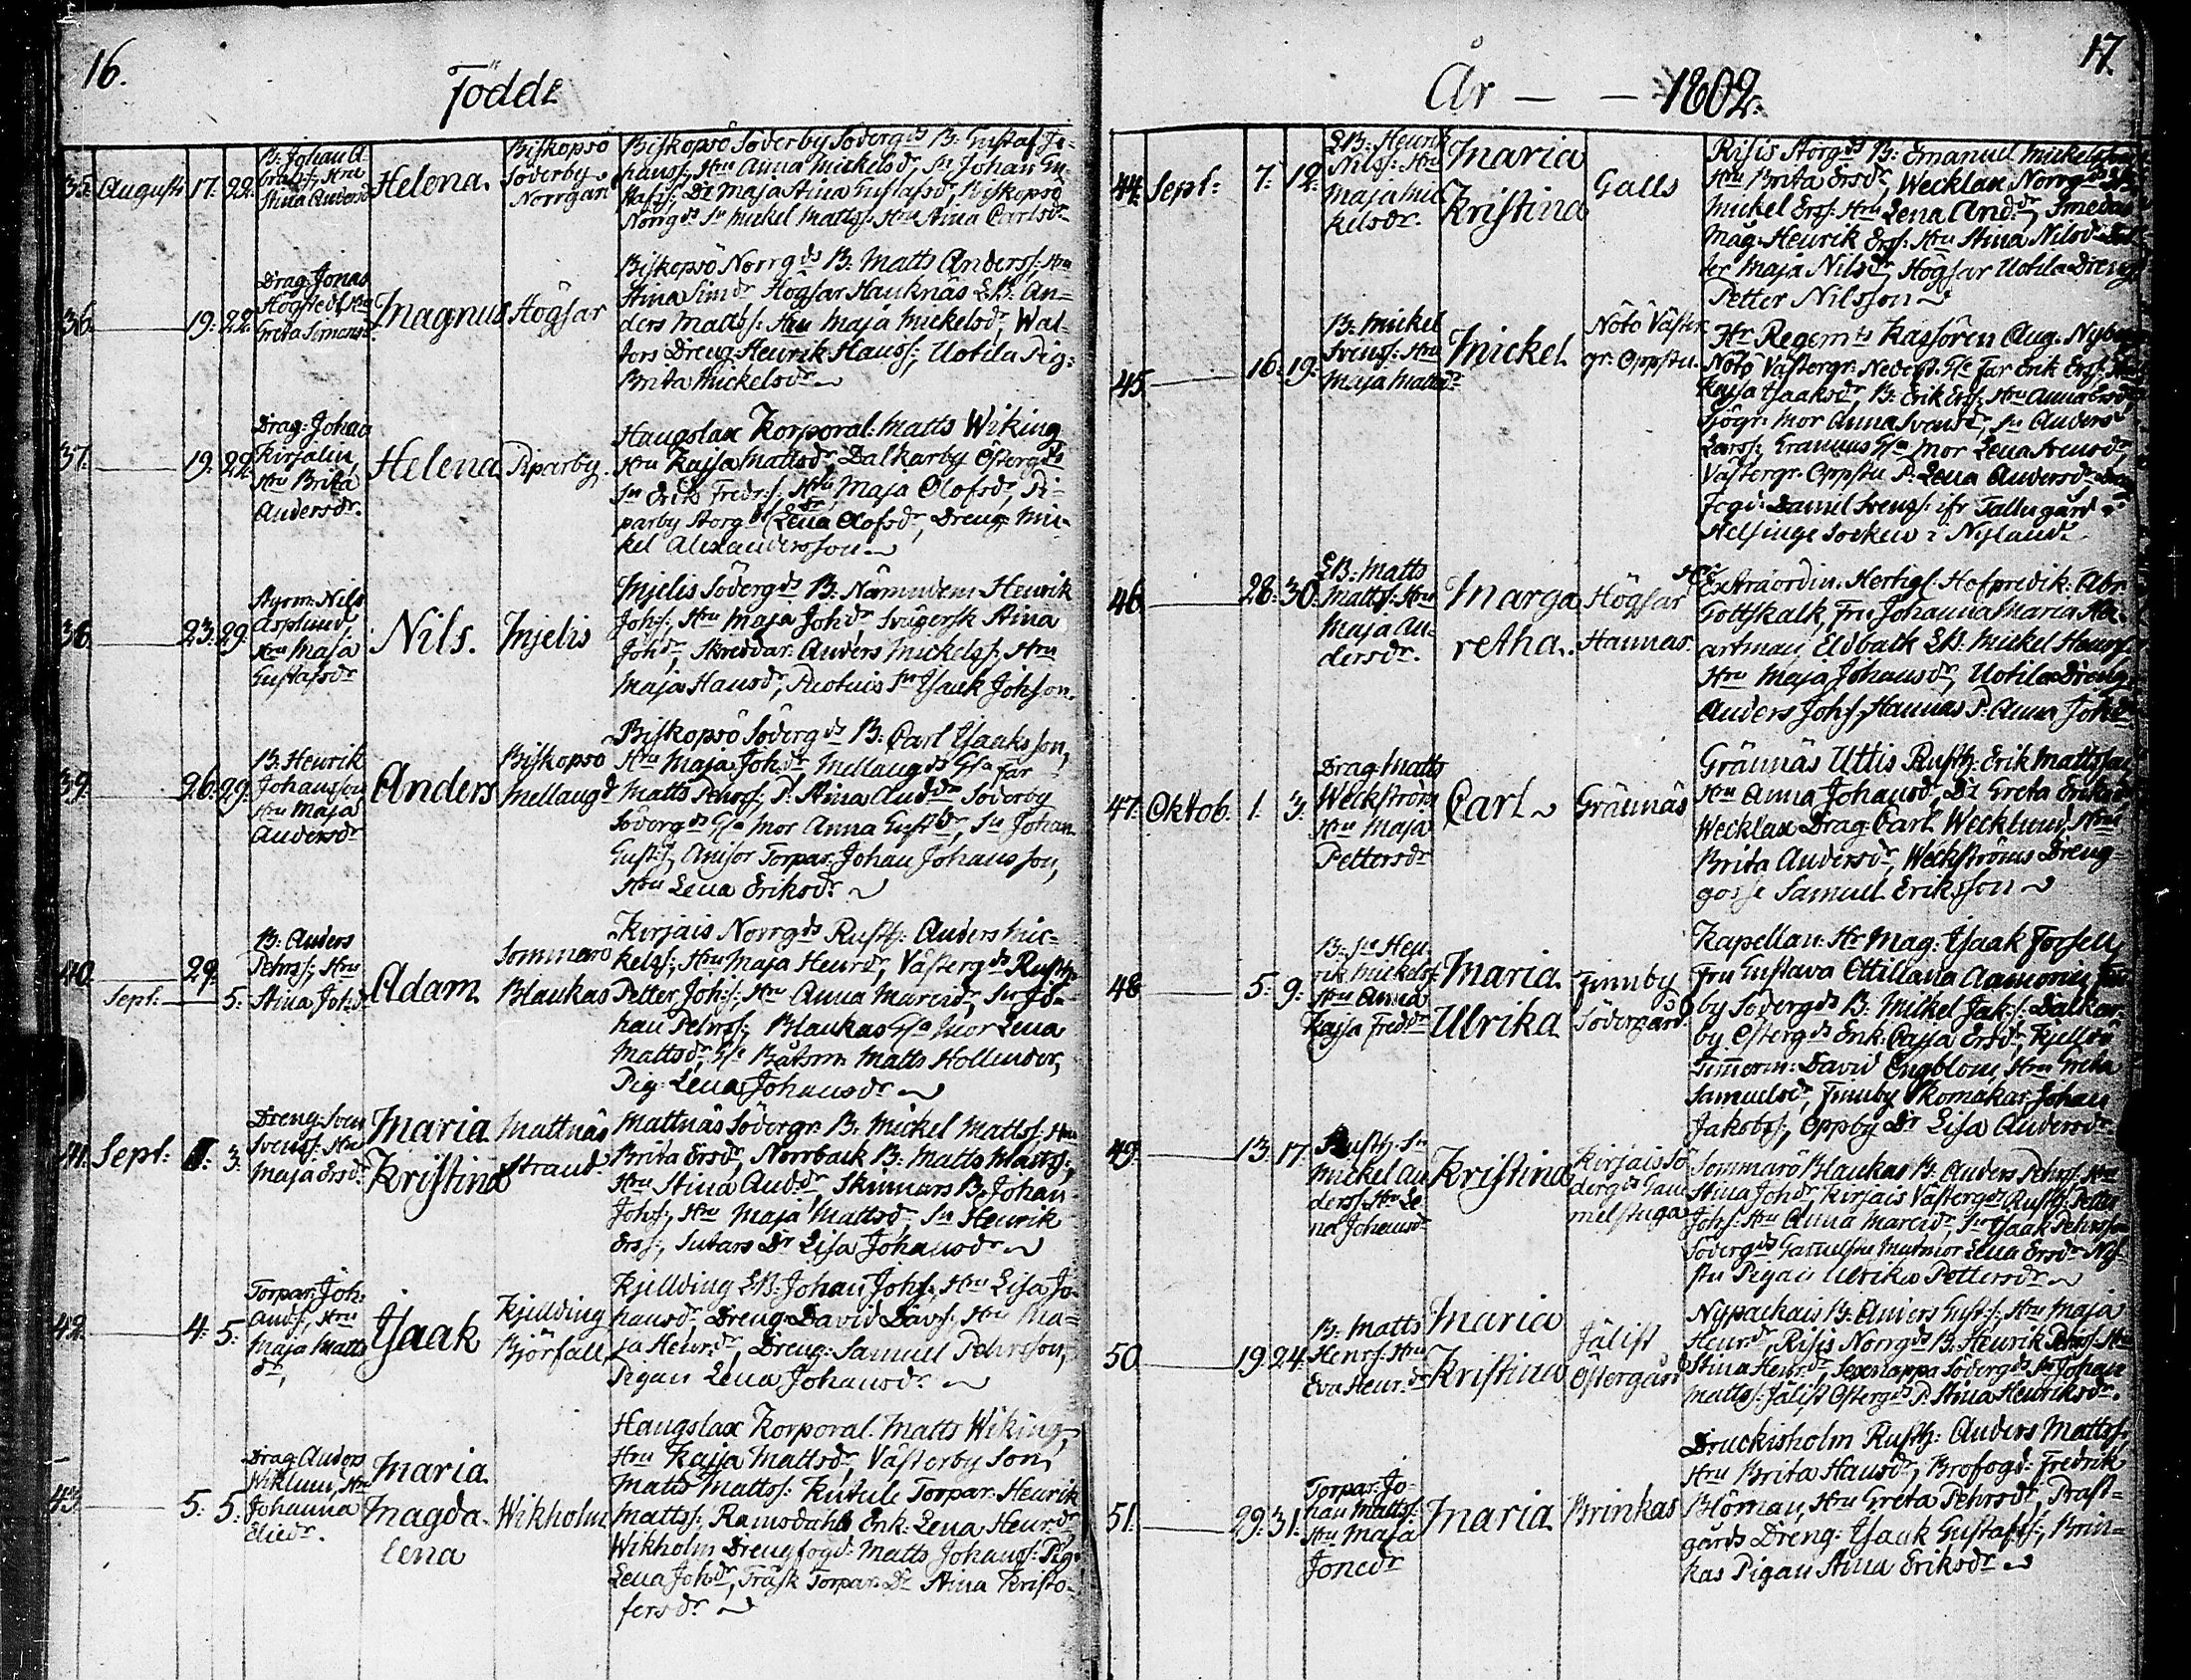 16.
Födde
35. Augusti 17. 22.
B. Johan
Stina Andersdr
Helena.
Biskopsö
Söderby
Norrgård
Biskopsö Söderby Södergds B: Gustaf Jo-
hanss; Hru Anna Mickelsdr, Sn Johan Gu-
stafss; Dr Maja Stina Gustafsdr, Biskopsö
Norrgds Sn Mickel Mattss. Hru Stina Carlsdr
36. 19. 22.
Drag: Jonas
Högstedt, Hru
Greta Simonsdr.
Magnus
Högsar
Biskopsö Norrgds B: Matts Anderss: Hru
Stina Simdr Högsar Hauknäs LB: An-
ders Mattss: Hru Maja Mickelsdr, Wal-
tors Dreng Henrik Hanss; Uotila Pig:
Brita Mickelsdr
37. 19. 22.
Drag: Johan
Kirsalin,
Hru Brita
Andersdr.
Helena
Piparby.
Haugslax Korporal: Matts Wiking
Hru Kajsa Mattsdr, Dalkarby Östergds
Sn Erik Fredr:s; Hru Maja Olofsdr, Pi-
parby Storgds Dr Lena Olofsdr, Dreng Mic-
kel Alexandersson
38. 23. 29.
Styrm: Nils
Asplund
Hru Maja
Gustafsdr
Nils.
Mjelis
Mjelis Södergds B: Nämndem: Henrik
Johs; Hru Maja Johdr Svägersk Stina
Johdr, Skreddar: Anders Mickelss; Hru
Maja Hansdr, Isaak Johsson.
39. 26. 29.
B: Henrik
Johansson
Hru Maja
Andersdr
Anders
Biskopsö
Mellangd
Biskopsö Södergds B: Carl Isaksson,
Hru Maja Johdr, Mellangds Gla Far
Matts Pehrss; P: Stina Anddr Söderby
Södergds Gla Mor Anna Gustdr, Sn Johan
Gust:s; Anisor Torpar: Johan Johansson,
Hru Lena Eriksdr
40. 29.
Sept: 5.
B: Anders
Pehrss; Hru
Stina Johdr
Adam
Sommarö
Blaukas
Kirjais Norrgds Rusth: Anders Mic-
kelss; Hru Maja Henrdr, Västergds Rusth:
Petter Joh:s; Hru Anna Marcidr, Sn Jo-
han Pehrss; Blaukas Gla Mor Lena
Mattsdr, Gle Båtsm: Matts Hollender,
Pig: Lena Johansdr
41. Sept: 1. 3.
Dreng: Sven
Svenss: Hru
Maja Ersdr.
Maria
Kristina
Mattnäs
Strand
Mattnäs Södergr: B: Mickel Mattss. Hru
Brita Ersdr, Norrback B: Matts Mattss;
Hru Stina Anddr, Skinnars B: Johan
Johs; Hru Maja Mattsdr, Sn Henrik
Erss; Sutars Dr Lisa Johansdr
42. 4. 5.
Torpar: Joh:
Ands; Hru
Maja Matts
dr,
Isaak
Kjellding
Björfall
Kjellding LB: Johan Johs; Hru Lisa Jo-
hansdr, Dreng: David Davs; Hru Ma-
ja Henrdr, Dreng: Samuel Pehrsson,
Pigan Lena Johansdr
43. 5. 5.
Drag: Anders
Wiklund, Hru
Johanna
Eliedr.
Maria
Magda-
lena
Wikholm
Haugslax Korporal: Matts Wiking,
Hru Kajsa Mattsdr, Västerby Son
Matts Mattss: Kutule Torpar: Henrik
Mattss; Ramsdahls Enk: Lena Henrdr
Wikholm Drengfogd: Matts Johanss: Pig:
Lena Johdr, Träsk Torpar: Dr Stina Kristo-
fersdr
År — — 1802.
17.
44. Sept: 7. 12.
LB: Henrik
Nilss: Hru
Maja Mic
kelsdr.
Maria
Kristina
Galls
Risis Storgds B: Emanuel Mickelsson
Hru Brita Ersdr, Wecklax Norrgds
Mickel Erss: Hru Lena Anddr, Smedas
Mag: Henrik Erss: Hru Stina Nilsdr
ter Maja Nilsdr, Högsar Uotila Dreng
Petter Nilsson
45. 16. 19.
B: Mickel
Svenss: Hru
Maja Mattsdr
Mickel
Nötö Väster
gr: Oppstu.
Hr Regemts Kassören Aug: Nyberg
Nötö Västergr: Nederst: Gle Far Erik Erss; Hru
Kajsa Isaaksdr, B: Erik Ers; Hru Anna Ersdr,
Sjögr: Mor Anna Svensdr, Sn Anders
Larss; Grannas Gla Mor Lena Svensdr,
Västergr: Oppstu P: Lena Andersdr
Fogd: Daniel Svenss: ifr Tallugård i
Helsinge Socken i Nyland
46. 28. 30.
LB: Matts
Mattss: Hru
Maja An-
dersdr.
Marga
retha.
Högsar
Hannas.
Hr Extraordin: Hertigl: Hofpredik: Abr:
Gottskalk, Fru Johanna Maria Ha-
artman, Eldback LB: Mickel Henrs;
Hru Maja Johansdr, Uotila Dreng:
Anders Johs; Hannas P: Anna Johdr
47. Oktob. 1. 3.
Drag: Matts
Weckström
Hru Maja
Pettersdr
Carl
Grännäs
Grännäs Uttis Rusth: Erik Mattsson
Hru Anna Johansdr, Dr Greta Eriksdr
Wecklax Drag: Carl Wecklund, Hru
Brita Andersdr, Weckströms Dreng-
gosse Samuel Eriksson
48. 5. 9.
B: Sn Hen
rik Mickelss:
Hru Anna
Kajsa Freddr
Maria
Ulrika
Finnby
Södergård
Kapellan: Hr Mag: Isaak Forsell,
Fru Gustava Ottiliana Aamonin, Fin
by Södergds B: Mickel Jak:s: Dalkar-
by Östergds Enk: Cajsa Ersdr, Kjellö
Timmerm: David Engblom, Hru Greta
Samuelsdr, Finnby Skomakar: Johan
Jakobss; Oppby Dr Lisa Andersdr
49. 13. 17.
Rusth: Sn
Mickel An
derss: Hru Le
na Johansdr
Kristina
Kirjais Sö
dergds Gam
melstuga
Sommarö Blaukas B: Anders Pehrs: Hru
Stina Johdr, Kirjais Västergds Rusth: Petter
Johs: Hru Anna Marcidr, Sn Isaak Pehrsson
Södergds Gamelstu Matmor Lena Ersdr Ny-
stu Pigan Ulrika Pettersdr
50. 19. 24.
B: Matts
Henrs: Hru
Eva Henr:dr
Maria
Kristina
Jälist
Östergård
Nypackais B: Anders Gust:s; Hru Maja
Henrdr, Risis Norrgds B: Henrik Pehrs: Hru
Stina Henrdr, Sexnappa Södergds Sn Johan
Mattss: Jälist Östergds P: Stina Henriksdr.
51. 29. 31.
Torpar: Jo-
han Mattss:
Hru Maja
Jonedr
Maria
Brinkas
Druckisholm Rusth: Anders Mattss:
Hru Brita Hansdr, Brofogd: Fredrik
Blöman, Hru Greta Pehrsdr, Präst-
gårds Dreng: Isaak Gustafss; Brin-
kas Pigan Stina Eriksdr